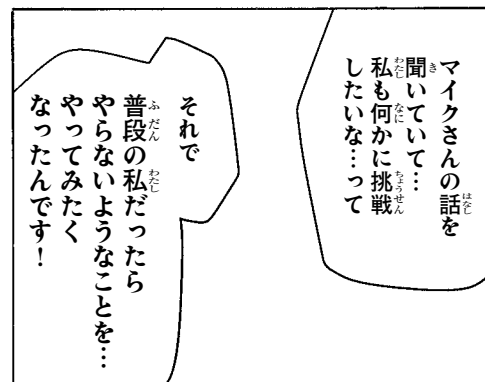 マイクさんの話を
聞いていて…
私も何かに挑戦
したいな…って
それで
普段の私だったら
やらないようなことを…
やってみたく
なったんです！